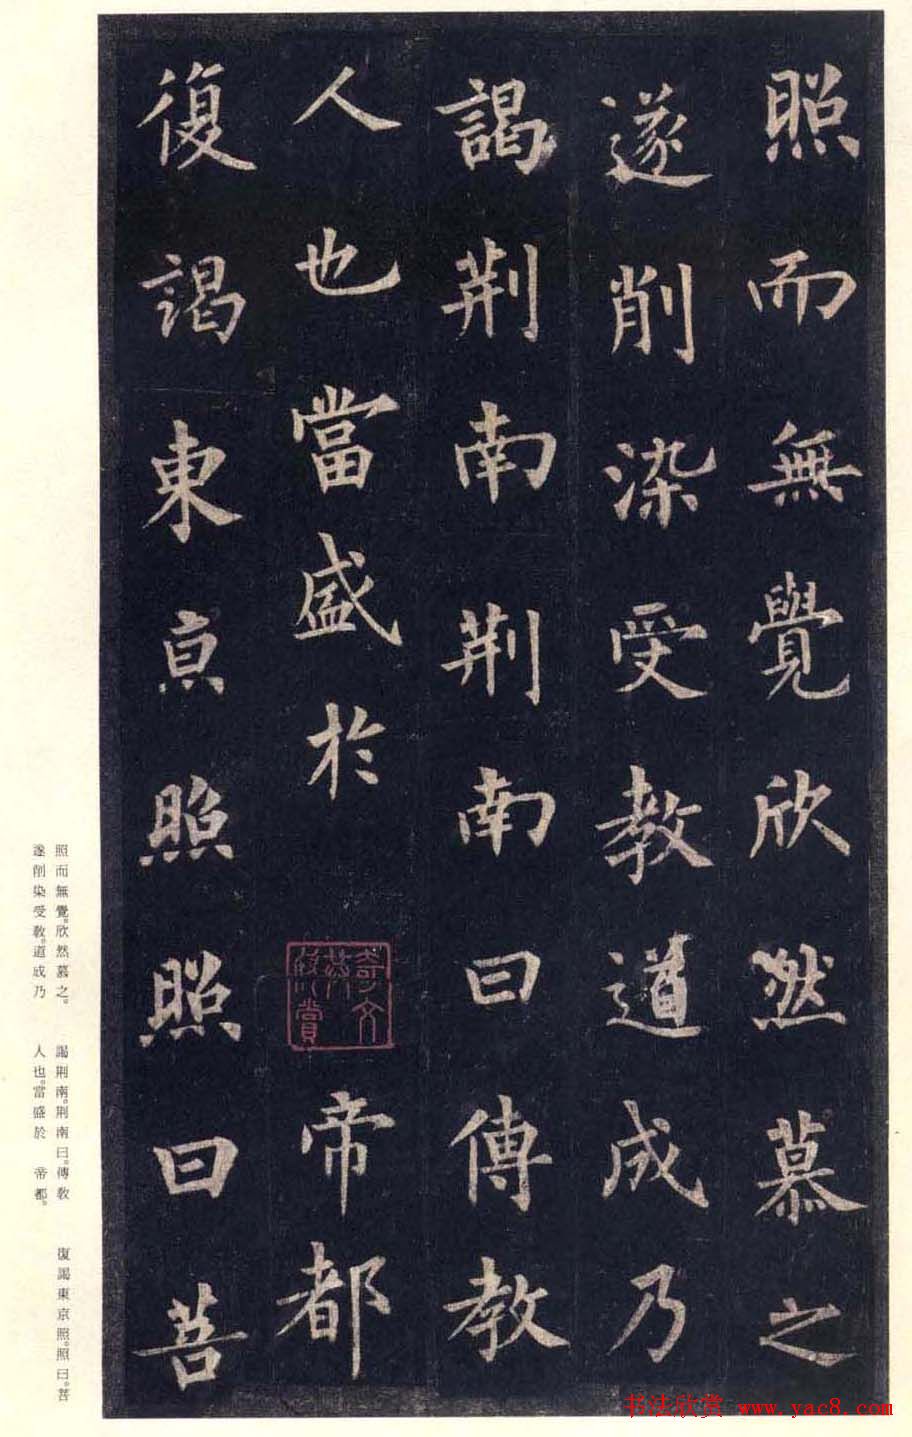 照而無覺欣然慕之
遂削染受教道成乃
謁荆南荆南曰傳教
人也當盛於帝都
復謁東京照照曰菩
照而無覺。欣然慕之。
遂削染受教。道成乃
謁荆南。荆南曰。傳教
人也。當盛於 帝都。
復謁東京照。照曰。菩
书法欣赏 www.yac8.com